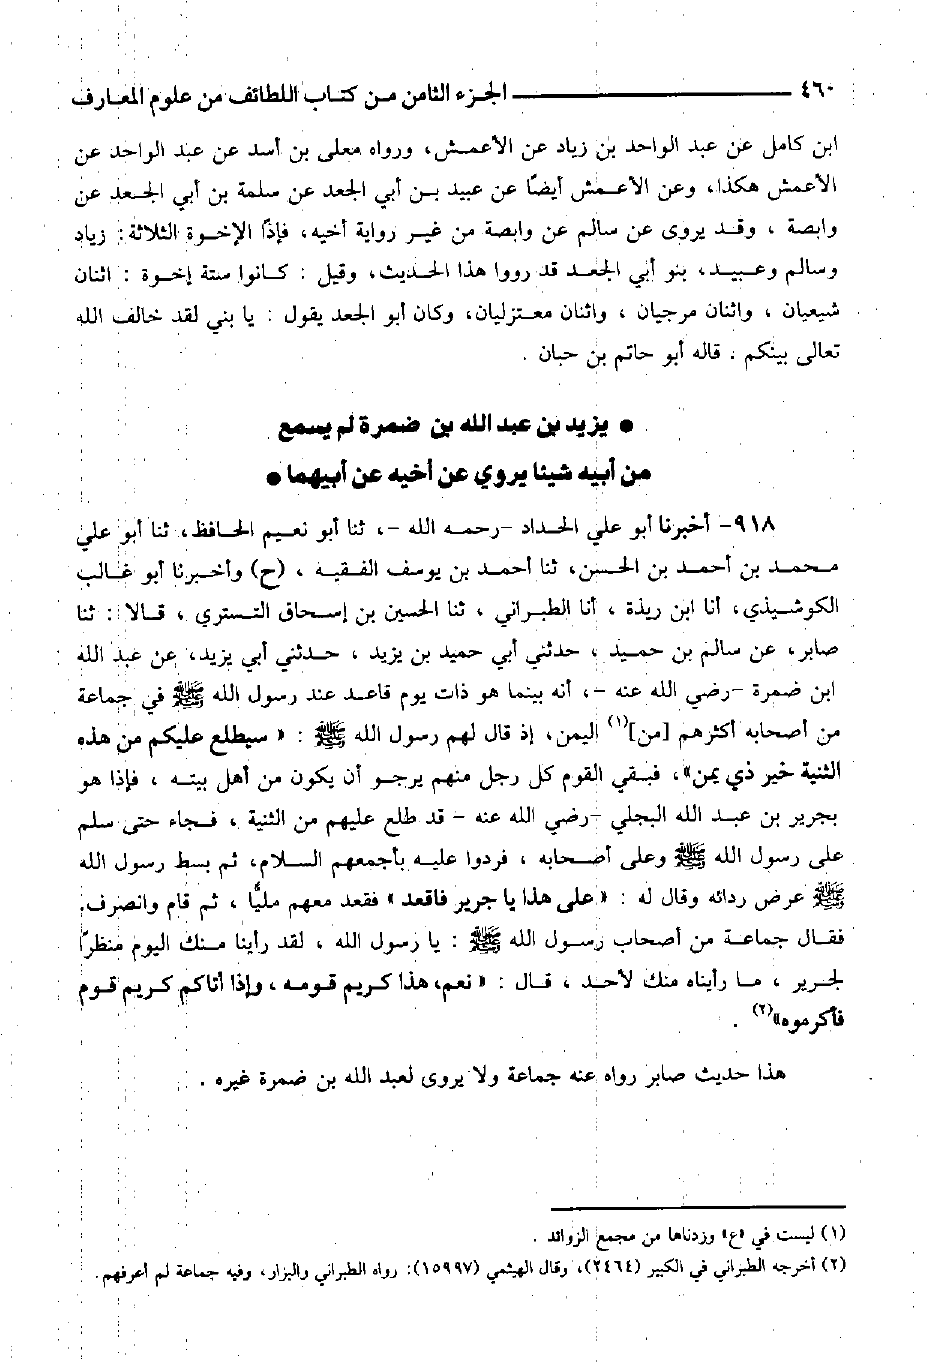 ٤٦٠ ــــــــــ الجزء الثامن من كتاب اللطائف من علوم المعارف
ابن كامل عن عبد الواحد بن زياد عن الأعمش، ورواه معلى بن أسد عن عبد الواحد عن
الأعمش هكذا، وعن الأعمش أيضًا عن عبيد بن أبي الجعد عن سلمة بن أبي الجعد عن
وابصة ، وقد يروى عن سالم عن وابصة من غير رواية أخيه، فإذًا الإخوة الثلاثة: زياد
وسالم وعبيد، بنو أبي الجعد قد رووا هذا الحديث، وقيل : كانوا ستة إخوة : اثنان
شيعيان ، واثنان مرجيان ، واثنان معتزليان، وكان أبو الجعد يقول : يا بني لقد خالف الله
تعالى بينكم . قاله أبو حاتم بن حبان .
● يزيد بن عبد الله بن ضمرة لم يسمع
من أبيه شيئا يروي عن أخيه عن أبيهما ●
٩١٨- أخبرنا أبو علي الحداد -رحمه الله -، ثنا أبو نعيم الحافظ، ثنا أبو علي
محمد بن أحمد بن الحسن، ثنا أحمد بن يوسف الفقيه ، (ح) وأخبرنا أبو غالب
الكوشيذي، أنا ابن ريذة ، أنا الطبراني ، ثنا الحسين بن إسحاق التستري ، قالا : ثنا
صابر، عن سالم بن حميد ، حدثني أبي حميد بن يزيد ، حدثني أبي يزيد، عن عبد الله
ابن ضمرة -رضي الله عنه -، أنه بينما هو ذات يوم قاعد عند رسول الله ﷺ في جماعة
من أصحابه أكثرهم [من](١) اليمن، إذ قال لهم رسول الله ﷺ : « سيطلع عليكم من هذه
الثنية خير ذي يمن»، فبقي القوم كل رجل منهم يرجو أن يكون من أهل بيته ، فإذا هو
بجرير بن عبد الله البجلي -رضي الله عنه - قد طلع عليهم من الثنية ، فجاء حتى سلم
على رسول الله ﷺ وعلى أصحابه ، فردوا عليه بأجمعهم السلام، ثم بسط رسول الله
ﷺ عرض ردائه وقال له : « على هذا يا جرير فاقعد » فقعد معهم مليًّا ، ثم قام وانصرف.
فقال جماعة من أصحاب رسول الله ﷺ : يا رسول الله ، لقد رأينا منك اليوم منظرًا
لجرير ، ما رأيناه منك لأحد ، قال : « نعم، هذا كريم قومه ، وإذا أتاكم كريم قوم
فأكرموه»(٢) .
هذا حديث صابر رواه عنه جماعة ولا يروى لعبد الله بن ضمرة غيره .
(١) ليست في «ع» وزدناها من مجمع الزوائد .
(٢) أخرجه الطبراني في الكبير (٢٤٦٤)، وقال الهيثمي (١٥٩٩٧): رواه الطبراني والبزار، وفيه جماعة لم أعرفهم.